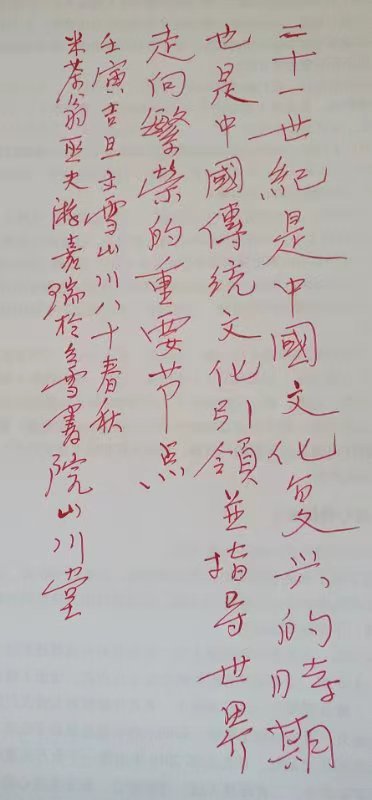 二十一世紀是中國文化复兴的时期
也是中國傳统文化引領並指导世界
走向繁荣的重要节点
壬寅吉旦主雪山川八十春秋
米茶翁巫夫游嘉瑞於雪書院山川堂